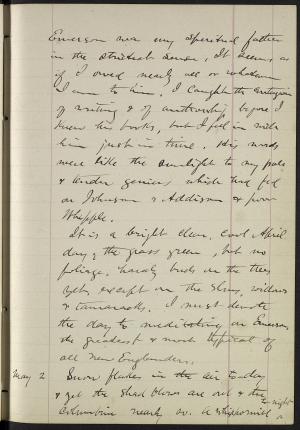 Emerson was my spiritual father
in the strictest sense. It seems as
if I owed nearly all or whatever
I am to him. I caught the contagion
of writing & of authorship before I
knew his books, but I fell in with
him just in time. His words
were like the sunlight to my pale
& tender genius which had fed
on Johnson & Addison & poor
Whipple.
It is a bright clear, cool April
day; the grass green, but no
foliage, hardly buds on the trees
yet, except on the elms, willows
& tamaracks. I must devote
the day to meditating on Emerson,
the greatest & most typical of
all New Englanders.
May 2 Snow flakes in the air to day
& yet the shad blows are out & the
columbine nearly so. A whippoorwill
to-night